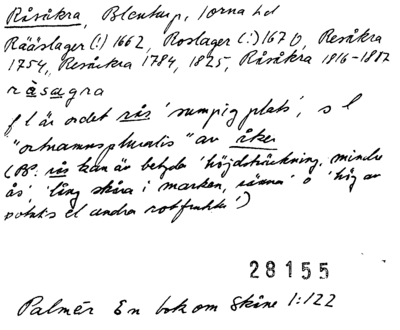 Råsåkra, Blentarp, Torna hd
Rååslager (!) 1662, Roslager (!) 1670, Resåkra
1754, Resåckra 1784, 1825, Råsåkra 1816-1882
råsagra
fl är ordet rås 'sumpig plats', s l
"ortnamnspluralis" av åker
(Bet. rås kan äv betyda 'höjdsträckning, mindre
ås', 'lång skåra i marken, ränna' o 'hög av
potatis el andra rotfrukter')
28155
Palmér En bok om Skåne 1:122